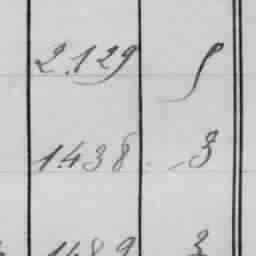 2.129 
1.438 3
1489 3